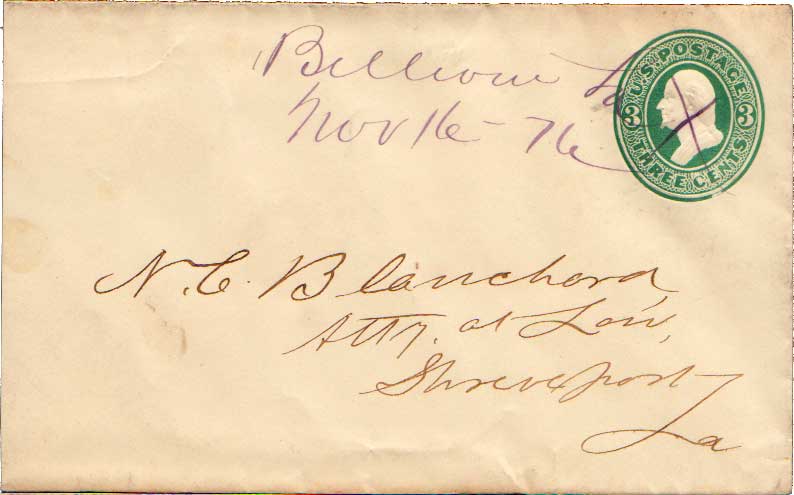 Bellevue La
Nov 16 - 76
U.S. POSTAGE
3 3
THREE CENTS
N. C. Blanchard,
Atty. at Law,
Shreveport
La